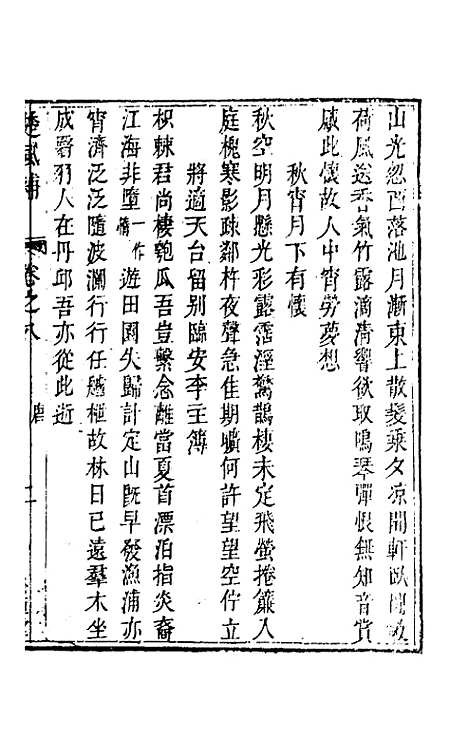 山光忽西落池月漸東上散髮乘夕凉開軒臥閒敞
荷風送香氣竹露滴清響欲取鳴琴彈恨無知音賞
感此懷故人中宵勞夢想
秋宵月下有懷
秋空明月懸光彩露霑溼驚鵲棲未定飛螢捲簾入
庭槐寒影疎鄰杵夜聲急佳期曠何許望望空佇立
將適天台留别臨安李主簿
枳棘君尚棲匏瓜吾豈繫念離當夏首漂泊指炎裔
江海非墮一作惰遊田園失歸計定山旣早發漁浦亦
宵濟泛泛隨波瀾行行任艫枻故林日已遠羣木坐
成翳羽人在丹邱吾亦從此逝
楚風補 卷之八 唐